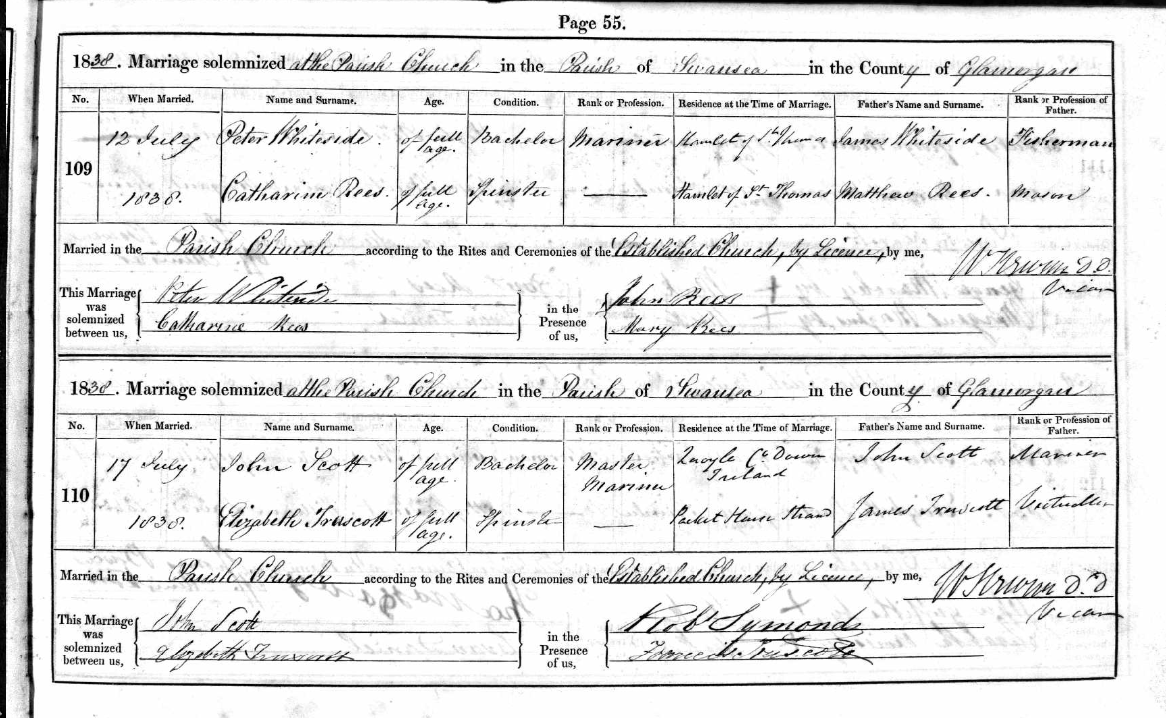 Page 55.
1838. Marriage solemnized at the Parish Church in the Parish of Swansea in the County of Glamorgan
No. When Married. Name and Surname. Age. Condition. Rank or Profession. Residence at the Time of Marriage. Father's Name and Surname. Rank or Profession of Father.
109
12 July Peter Whiteside. of full age. Bachelor Mariner Hamlet of St Thomas James Whiteside Fisherman
1838. Catharine Rees. of full age. Spinster Hamlet of St Thomas Matthew Rees. Mason
Married in the Parish Church according to the Rites and Ceremonies of the Established Church, by Licence, by me,
D.D.
Vicar
This Marriage was solemnized between us,
Peter Whiteside
Catharine Rees
in the Presence of us,
John Rees
Mary Rees
1838. Marriage solemnized at the Parish Church in the Parish of Swansea in the County of Glamorgan
No. When Married. Name and Surname. Age. Condition. Rank or Profession. Residence at the Time of Marriage. Father's Name and Surname. Rank or Profession of Father.
110
17 July John Scott of full age. Bachelor Master Mariner Quoyle Co Down Ireland John Scott Mariner
1838. Elizabeth Truscott of full age. Spinster Packet House Strand James Truscott Victualler
Married in the Parish Church according to the Rites and Ceremonies of the Established Church, by Licence, by me,
D.D
Vicar
This Marriage was solemnized between us,
John Scott
Elizabeth Truscott
in the Presence of us,
Robt Symonds
Truscott